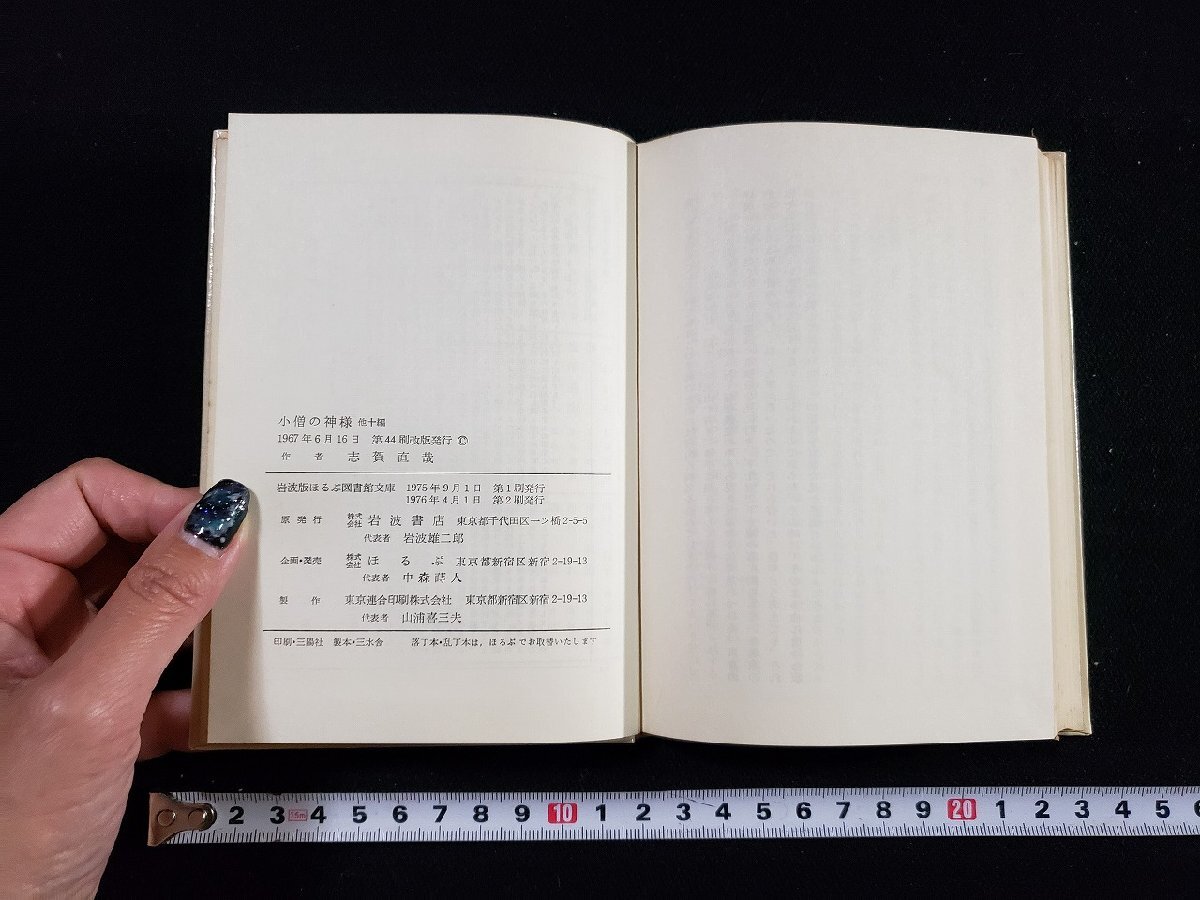 小僧の神様 他十編
1967年6月16日 第44刷改版発行 ©
作者 志賀直哉
岩波版ほるぷ図書館文庫 1975年9月1日 第1刷発行
1976年4月1日 第2刷発行
原発行 株式会社 岩波書店 東京都千代田区一ツ橋2-5-5
代表者 岩波雄二郎
企画・発売 株式会社 ほるぷ 東京都新宿区新宿2-19-13
代表者 中森蒔人
製作 東京連合印刷株式会社 東京都新宿区新宿2-19-13
代表者 山浦喜三夫
印刷・三陽社 製本・三水舎 落丁本・乱丁本は,ほるぷでお取替いたします
2 3 4 5 6 7 8 9 10 1 2 3 4 5 6 7 8 9 20 1 2 3 4 5 6